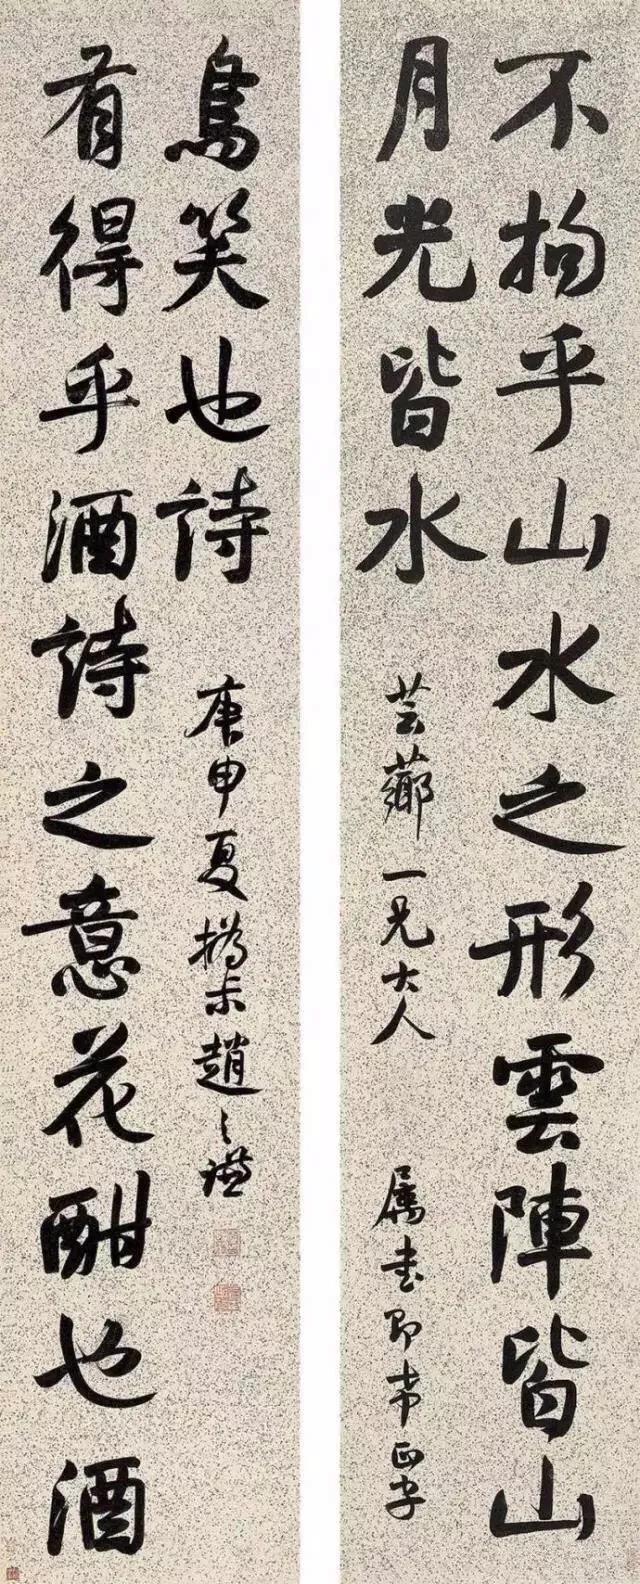 不拘乎山水之形雲陣皆山
月光皆水
芸薌一兄大人
属書即希正字
有得乎酒詩之意花酣也酒
鳥笑也詩
庚申夏撝未趙之謙